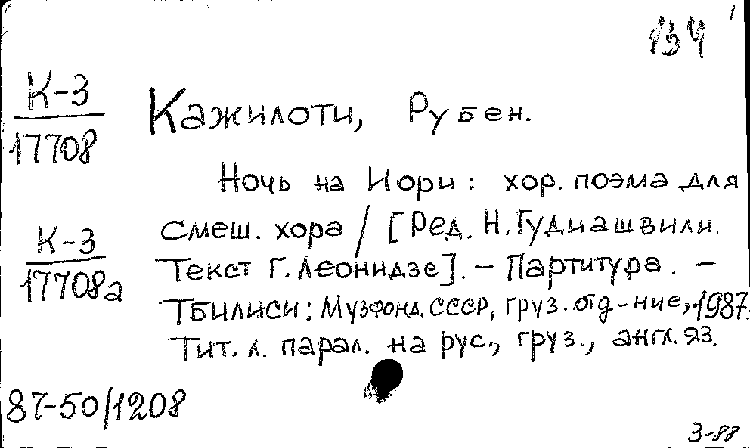 134
К-3
17708
Кажилоти, Рубен.
Ночь на Иори: хор. поэма для
К-3
17708а
смеш. хора / [Ред. Н. Гудиашвили.
Текст Г. Леонидзе]. - Партитура. -
Тбилиси: Музфонд СССР, груз. отд-ние, 1987.
Тит. л. парал. на рус., груз., англ. яз.
87-50/1208
3-88